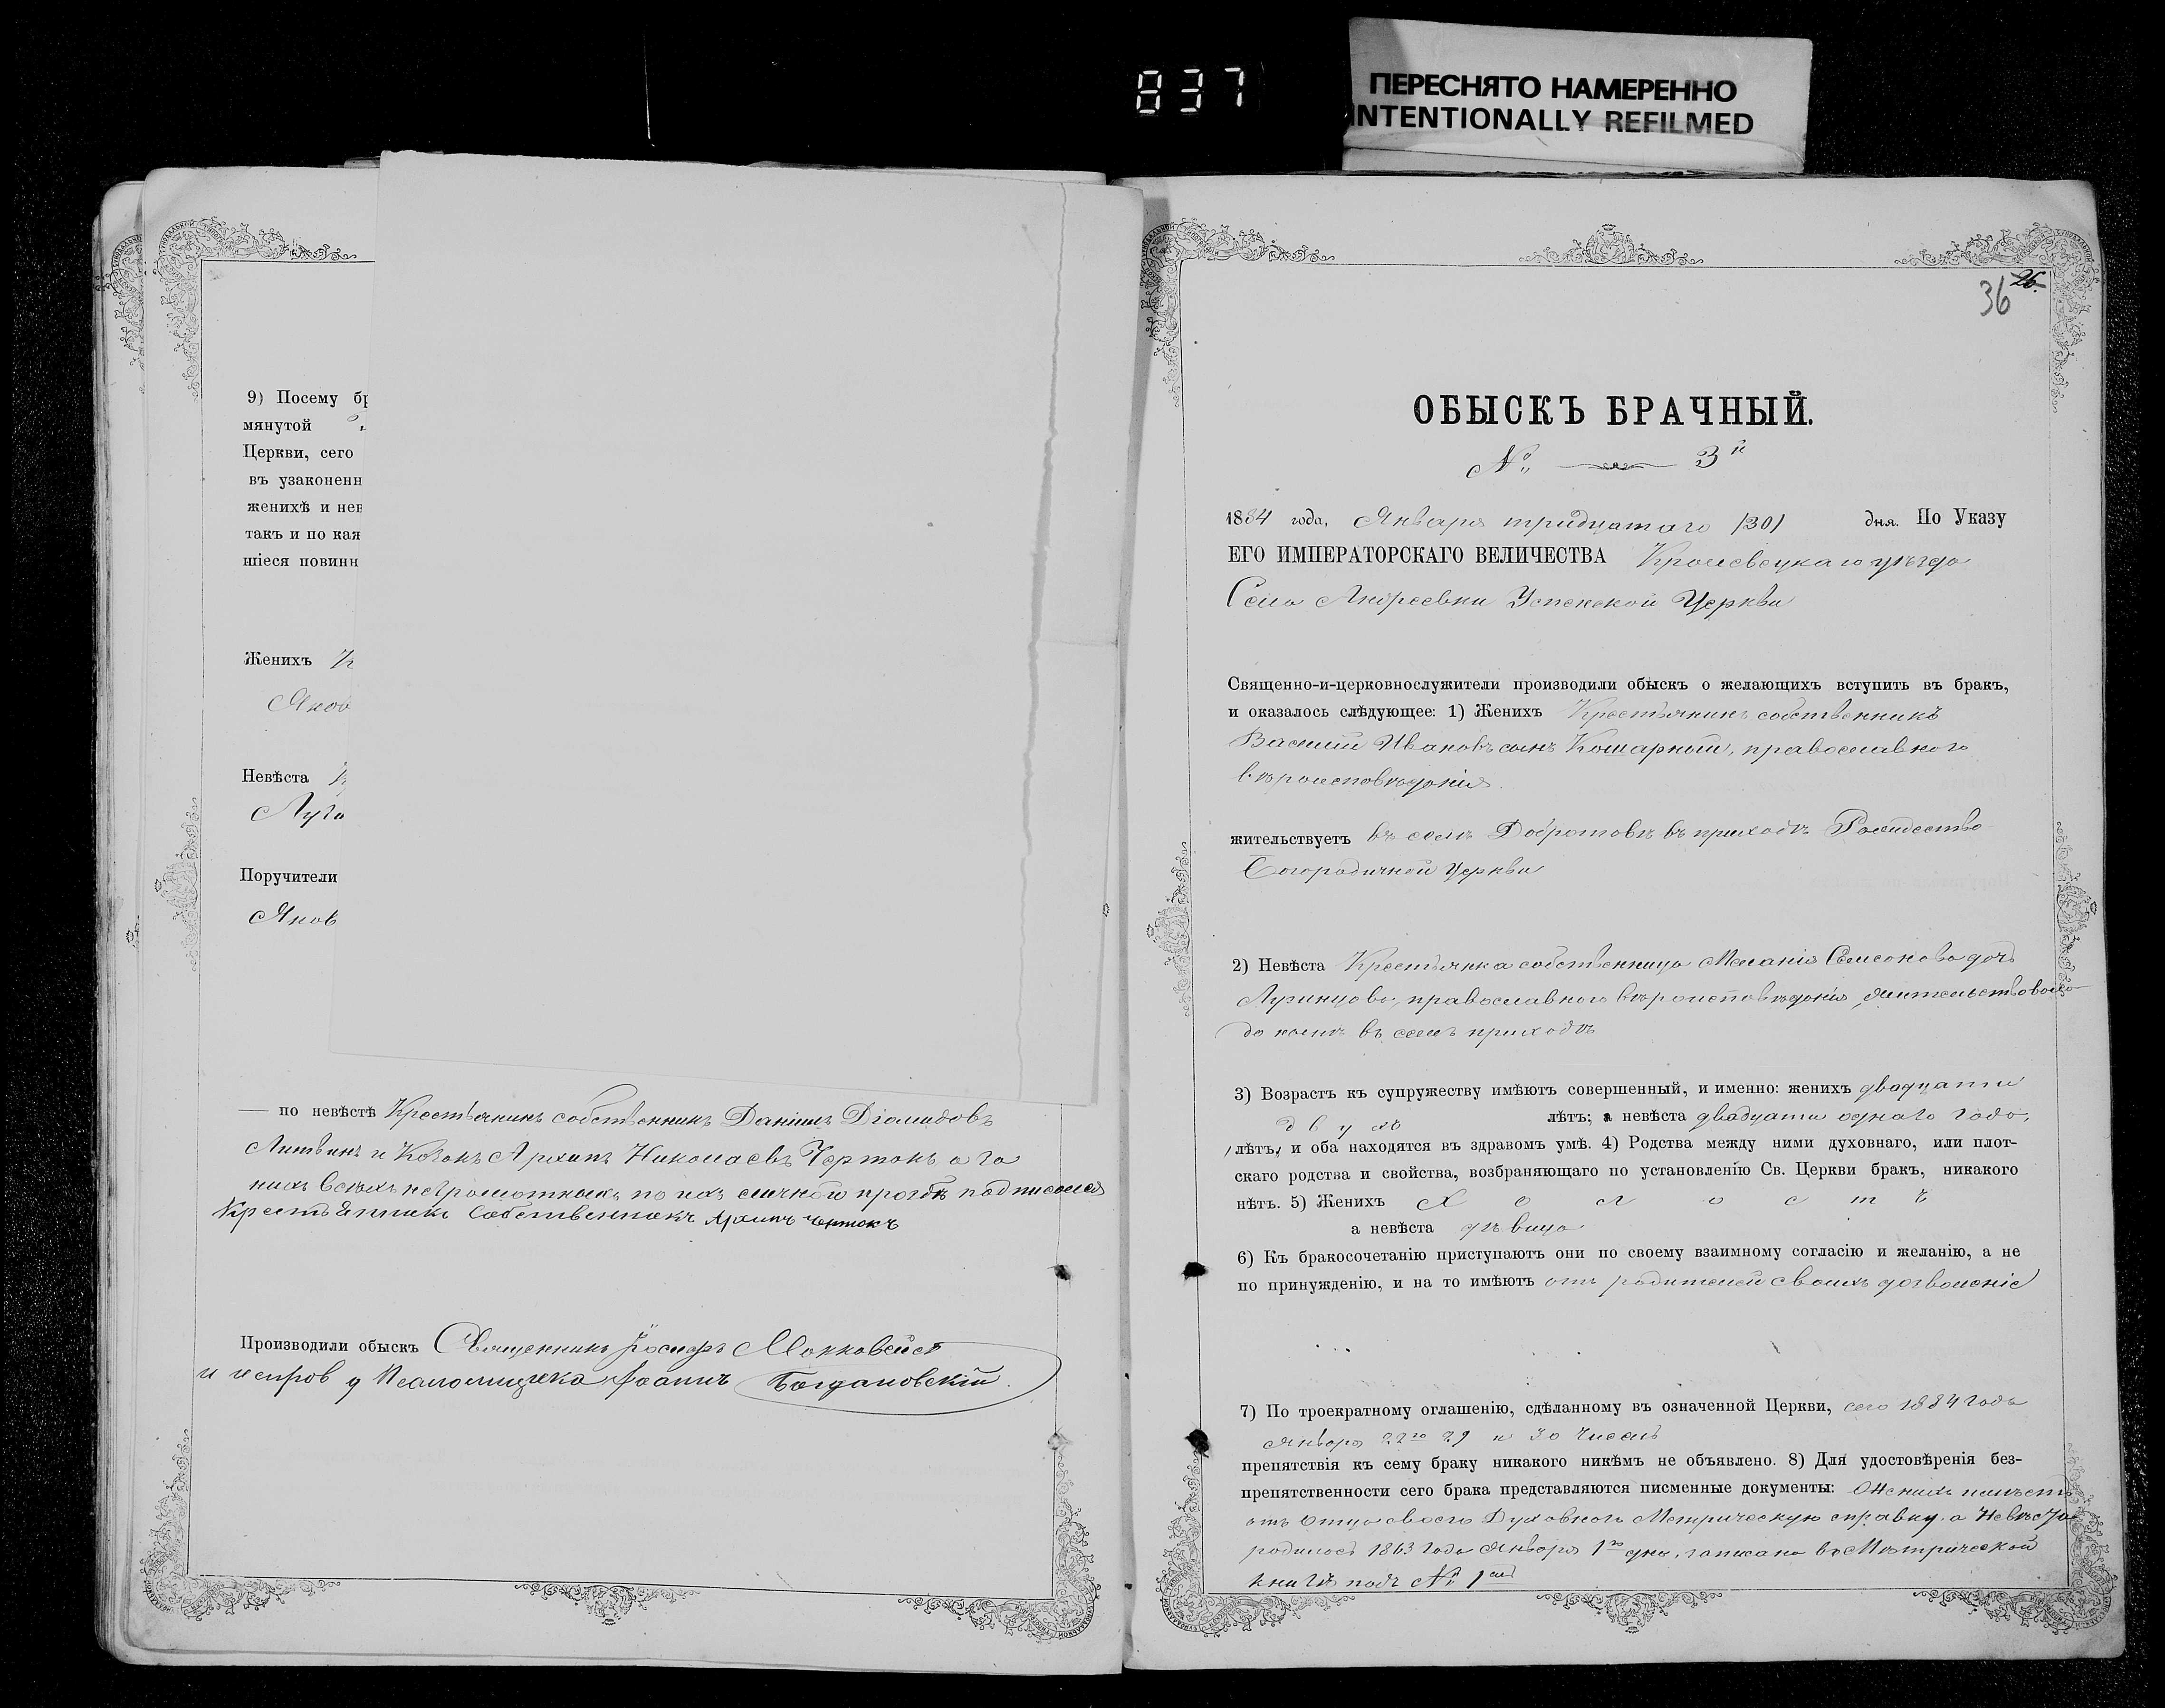 837
ПЕРЕСНЯТО НАМЕРЕННО
INTENTIONALLY REFILMED
9) Посему бр
мянутой
Церкви, сего
въ узаконенн
женихѣ и нев
такъ и по кая
шіеся повинн
Женихъ
Яков
Невѣста
Луга
Поручители
Яков
— по невѣстѣ Крестьянинъ собственникъ Даніилъ Діомидовъ
Литвинъ и Козакъ Архипъ Николаевъ Чертокъ а за
нихъ всѣхъ неграмотныхъ по ихъ личной прозбѣ подписался
Крестьянинъ Собственникъ Архипъ Чертокъ
Производили обыскъ Священникъ Іосифъ Маккавейскій
и испров д Псаломщика Іоаннъ Богдановскій
36 26.
ОБЫСКЪ БРАЧНЫЙ.
№ 3й
1884 года, Января тридцатаго /30/ дня. По Указу
ЕГО ИМПЕРАТОРСКАГО ВЕЛИЧЕСТВА Кролевецкаго уѣзда
Села Андреевки Успенской Церкви
Священно-и-церковнослужители производили обыскъ о желающихъ вступить въ бракъ,
и оказалось слѣдующее: 1) Женихъ Крестьянинъ собственникъ
Василій Ивановъ сынъ Кошарный, православнаго
вѣроисповѣданія.
жительствуетъ въ селѣ Добротовѣ въ приходѣ Рождество
Богородичной Церкви
2) Невѣста Крестьянка собственница Меланія Самсонова дочь
православнаго вѣроисповѣданія, жительствовала
до нынѣ въ семъ приходѣ
3) Возрастъ къ супружеству имѣютъ совершенный, и именно: женихъ двадцати
двухъ лѣтъ; а невѣста двадцати однаго года,
/лѣтъ,/ и оба находятся въ здравомъ умѣ. 4) Родства между ними духовнаго, или плот-
скаго родства и свойства, возбраняющаго по установленію Св. Церкви бракъ, никакого
нѣтъ. 5) Женихъ Х о л о с т ъ
а невѣста дѣвица
6) Къ бракосочетанію приступаютъ они по своему взаимному согласію и желанію, а не
по принужденію, и на то имѣютъ отъ родителей своихъ дозволеніе
7) По троекратному оглашенію, сдѣланному въ означенной Церкви, сего 1884 года
Января 22го 29 и 30 числъ
препятствія къ сему браку никакого никѣмъ не объявлено. 8) Для удостовѣренія без-
препятственности сего брака представляются писменные документы: Женихъ имѣетъ
отъ Отца своего Духовнаго Метрическую справку. а Невѣста
родилась 1863 года Января 1го дня, записана въ Метрической
книгѣ подъ № 1мъ